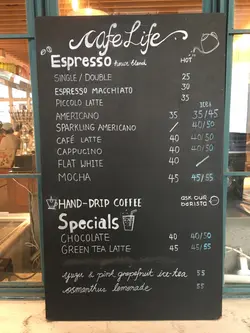 Cafe Life
Espresso house blend HOT
SINGLE / DOUBLE 25
ESPRESSO MACCHIATO 30
PICCOLO LATTE 35
AMERICANO 35 35/45
SPARKLING AMERICANO / 40/50
CAFÉ LATTE 40 40/50
CAPPUCINO 40 40/50
FLAT WHITE 40 /
MOCHA 45 45/55
HAND-DRIP COFFEE ASK OUR BARISTA
Specials
CHOCOLATE 40 40/50
GREEN TEA LATTE 45 45/55
yuzu & pink grapefruit ice-tea 55
osmanthus lemonade 55